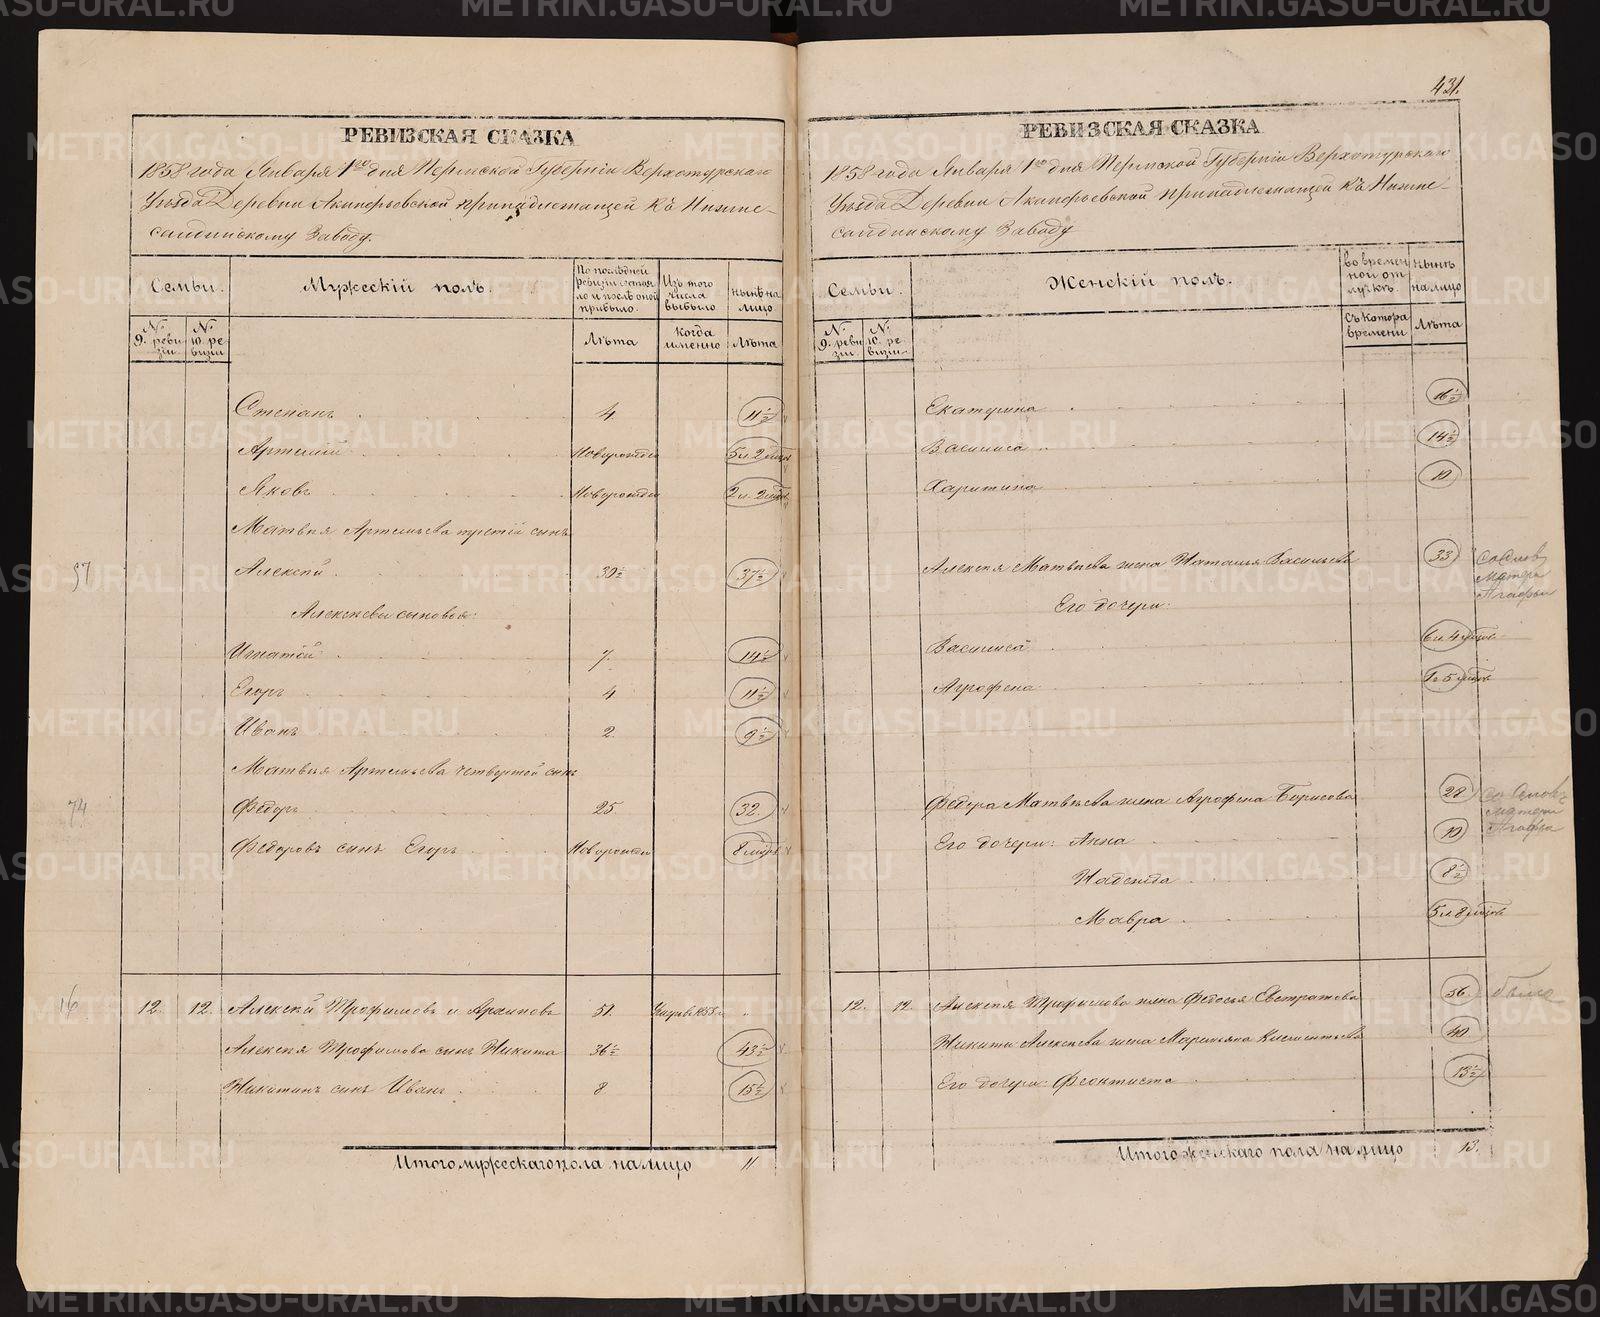 431.
РЕВИЗСКАЯ СКАЗКА
1858 года Января 1го дня Пермской Губерніи Верхотурскаго
Уѣзда Деревни Акинфьевской принадлежащей къ Нижне-
салдинскому Заводу.
Семьи.
Мужескій полъ.
По послѣдней ревизіи состояло и послѣ оной прибыло.
Изъ того числа выбыло
нынѣ на лицо
№ 9. ревизіи
№ 10. ревизіи
Лѣта
Когда именно
Лѣта
Степанъ 4 11½
Артемій Новорожден 5 и 2 мѣся
Яковъ Новорожден 2 и 2 мѣся
Матвѣя Артемьева третій сынъ
37 Алексѣй 30½ 37½
Алексѣевы сыновья:
Игнатій 7. 14½
Егоръ 4 11½
Иванъ 2 9½
Матвѣя Артемьева четвертой сынъ
74 Ѳедоръ 25 32.
Ѳедоровъ сынъ Егоръ Новорожден 8 мѣся
16 12. 12. Алексѣй Трофимовъ и Архиповъ 51. 1858
Алексѣя Трофимова сынъ Никита 36½ 43½
Никитинъ сынъ Иванъ 8 15½
Итого мужескаго пола на лицо 11
РЕВИЗСКАЯ СКАЗКА
1858 года Января 1го дня Пермской Губерніи Верхотурскаго
Уѣзда Деревни Акинфьевской принадлежащей къ Нижне-
салдинскому Заводу
Семьи.
Женскій полъ.
во временной отлучкѣ.
нынѣ на лицо
№ 9. ревизіи
№ 10. ревизіи
Съ котора времени
Лѣта
Екатерина 16½
Василиса 14½
Харитина 10
Алексѣя Матвѣева жена Наталья Васильева 33
матери
Его дочери:
Василиса 6 и 4 мѣсяцов
Агрофена 1 и 5 мѣсяц
Ѳедора Матвѣева жена Агрофена Борисова 28
матери
Его дочери: Анна 10
Надежда 8½
Мавра 5 и 8 мѣсяцов
12. 12. Алексѣя Трофимова жена Ѳедосья Евстратова 56.
Никиты Алексѣева жена Маремьяна 40
Его дочери: Феоктиста 13½
Итого женскаго пола на лицо 13.
METRIKI.GASO-URAL.RU